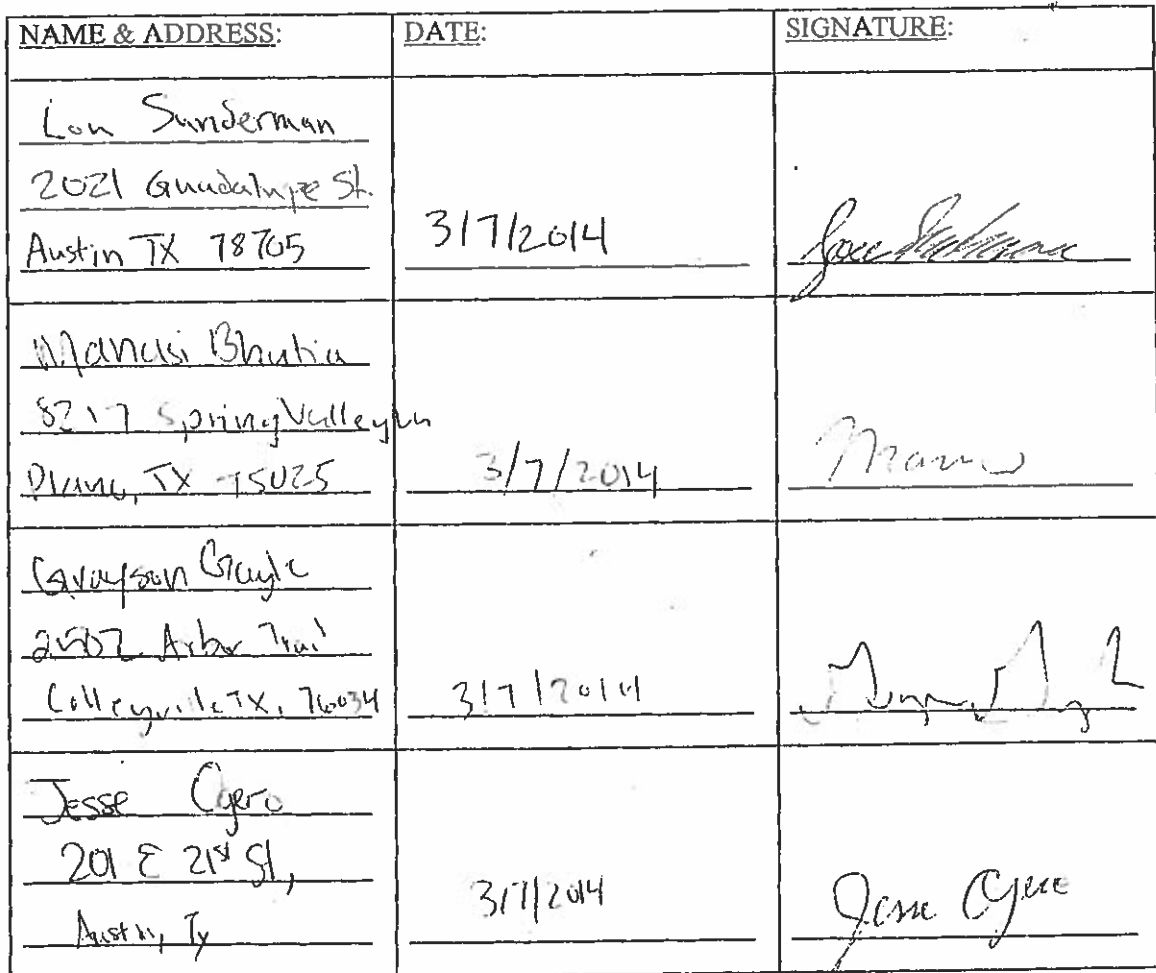 NAME & ADDRESS: DATE: SIGNATURE:
Lou Sunderman
2021 Guadalupe St.
Austin TX 78705 3/7/2014
Manasi Bhutia
8217 Spring Valley Ln
Plano, TX 75025 3/7/2014
Grayson Gayle
2502 Arbor Trail
Colleyville TX, 76034 3/7/2014
Jesse
201 E 21st St,
Austin, Tx 3/7/2014 Jesse